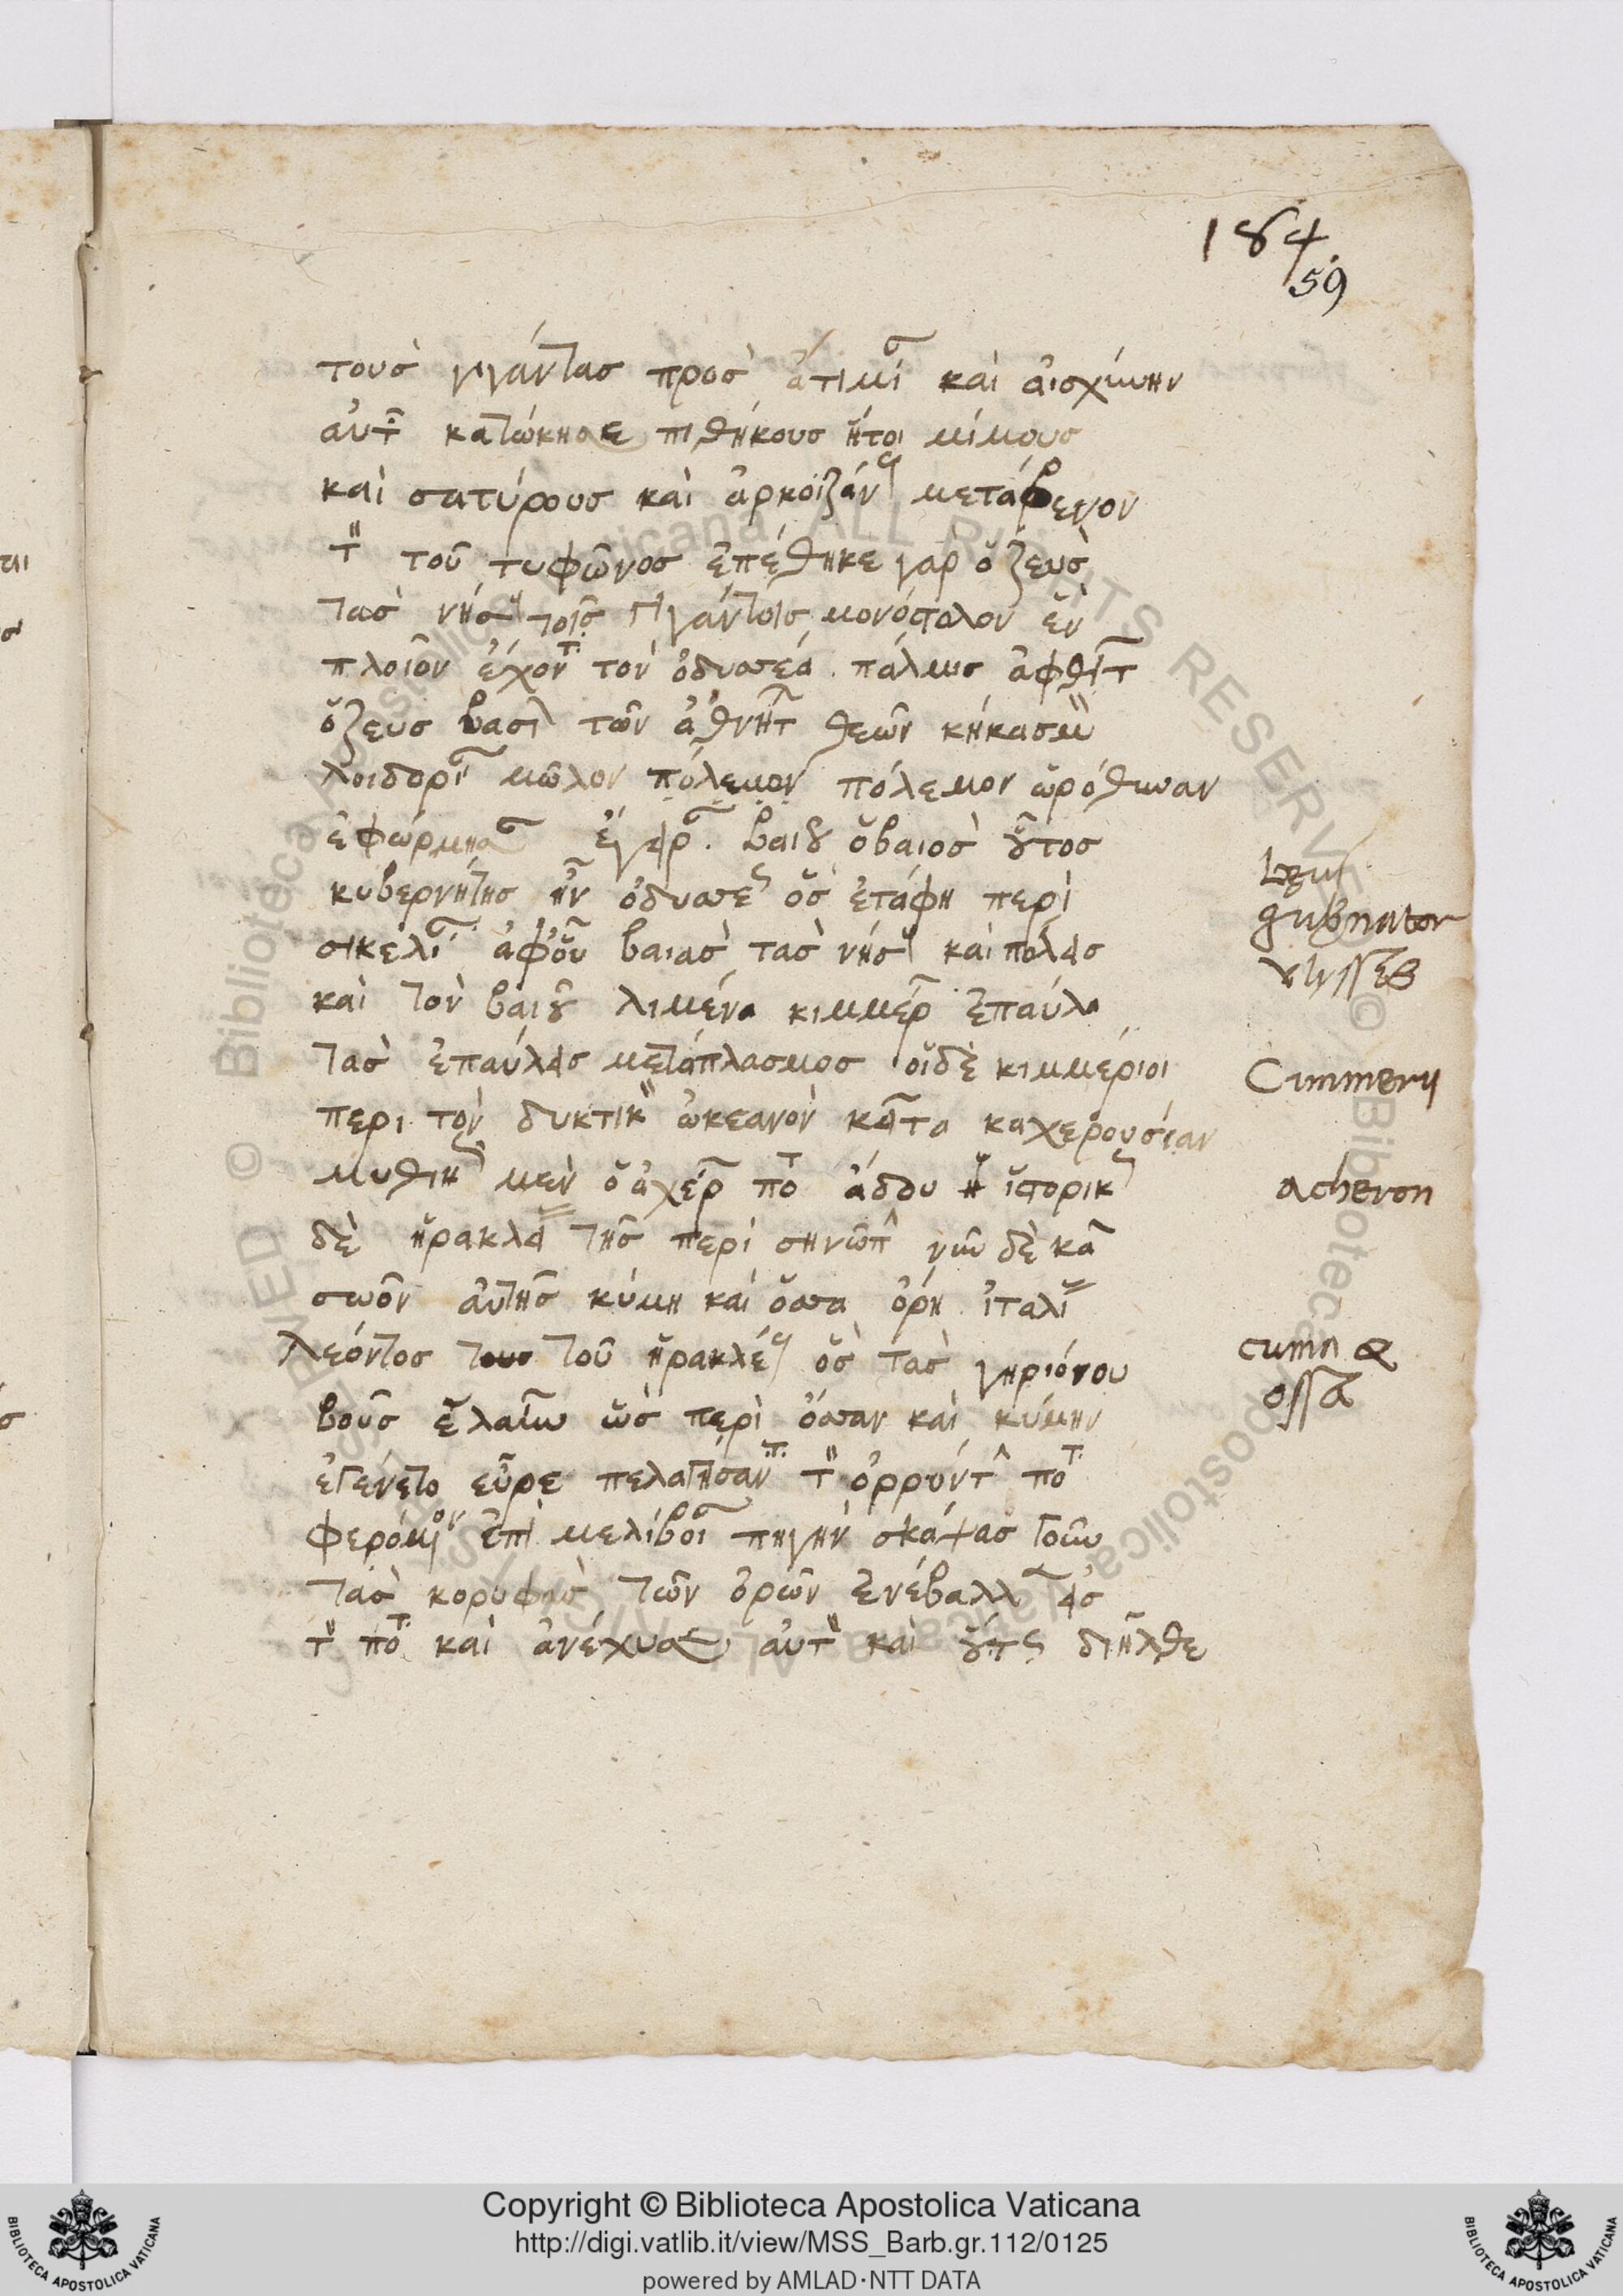 184
59
τους γιγάντας προς ἀτιμί καὶ ἀισχύνην
αυτ κατώκησε πιθήκους ἤτοι μίμους
και σατύρους και μετάφρενον
τ τοῦ τυφῶνος ἐπέθηκε γαρ ὁ ζευς
τας νήσ τοῖς γίγαντοις μονόστολον ἓν
πλοῖον ἔχοντ τον ὀδυσσέα. πάλμυς ἀφθίτ
ὁ ζευς βασιλ τῶν ἀθνήτ θεῶν κήκασμ
λοιδορί μῶλον πόλεμον πόλεμον ὠρόθυναν
ἐφώρμησ ἐγερ. βαιου ὁ βαιος οὗτος
κυβερνήτης ἦν ὀδυσσε ὃς ἐτάφη περὶ
σικελί ἀφ οὗ βαιας τας νήσ και πόλεις
και τον βαιου λιμένα κιμμερ ἔπαυλα
τας ἐπαύλεις μεταπλασμος οἱ δὲ κιμμέριοι
περι τον δυκτικ ὠκεανον κᾆτα καχερουσίαν
μυθικ μεν ὁ ἀχέρ ποτ ἅδου ἡ ἱστορικ
δὲ ἡρακλεί της περὶ σηνώπ νῦν δὲ κα
αὐτης κύμη και ὄσσα ὄρη ἰταλί
λεόντος τοῦ ἡρακλέ ὃς τας γηριόνου
βοῦς ἐλαύν ὡς περὶ ὄσσαν και κύμην
ἐγένετο εὗρε πελαγήσαντ τ ὀρρυντ ποτ
φερόμ ἐπὶ μελίβοι πηγην σκάψας
τας κορυφας τῶν ὀρῶν ἐνέβαλλ εἰς
τ ποτ και ἀνέχυσε αὐτ και οὕτως διῆλθε
beus
gubnator
vlysses
Cimmerij
acheron
cuma &
ossa
Copyright © Biblioteca Apostolica Vaticana
http://digi.vatlib.it/view/MSS_Barb.gr.112/0125
powered by AMLAD·NTT DATA
BIBLIOTECA APOSTOLICA VATICANA
BIBLIOTECA APOSTOLICA VATICANA